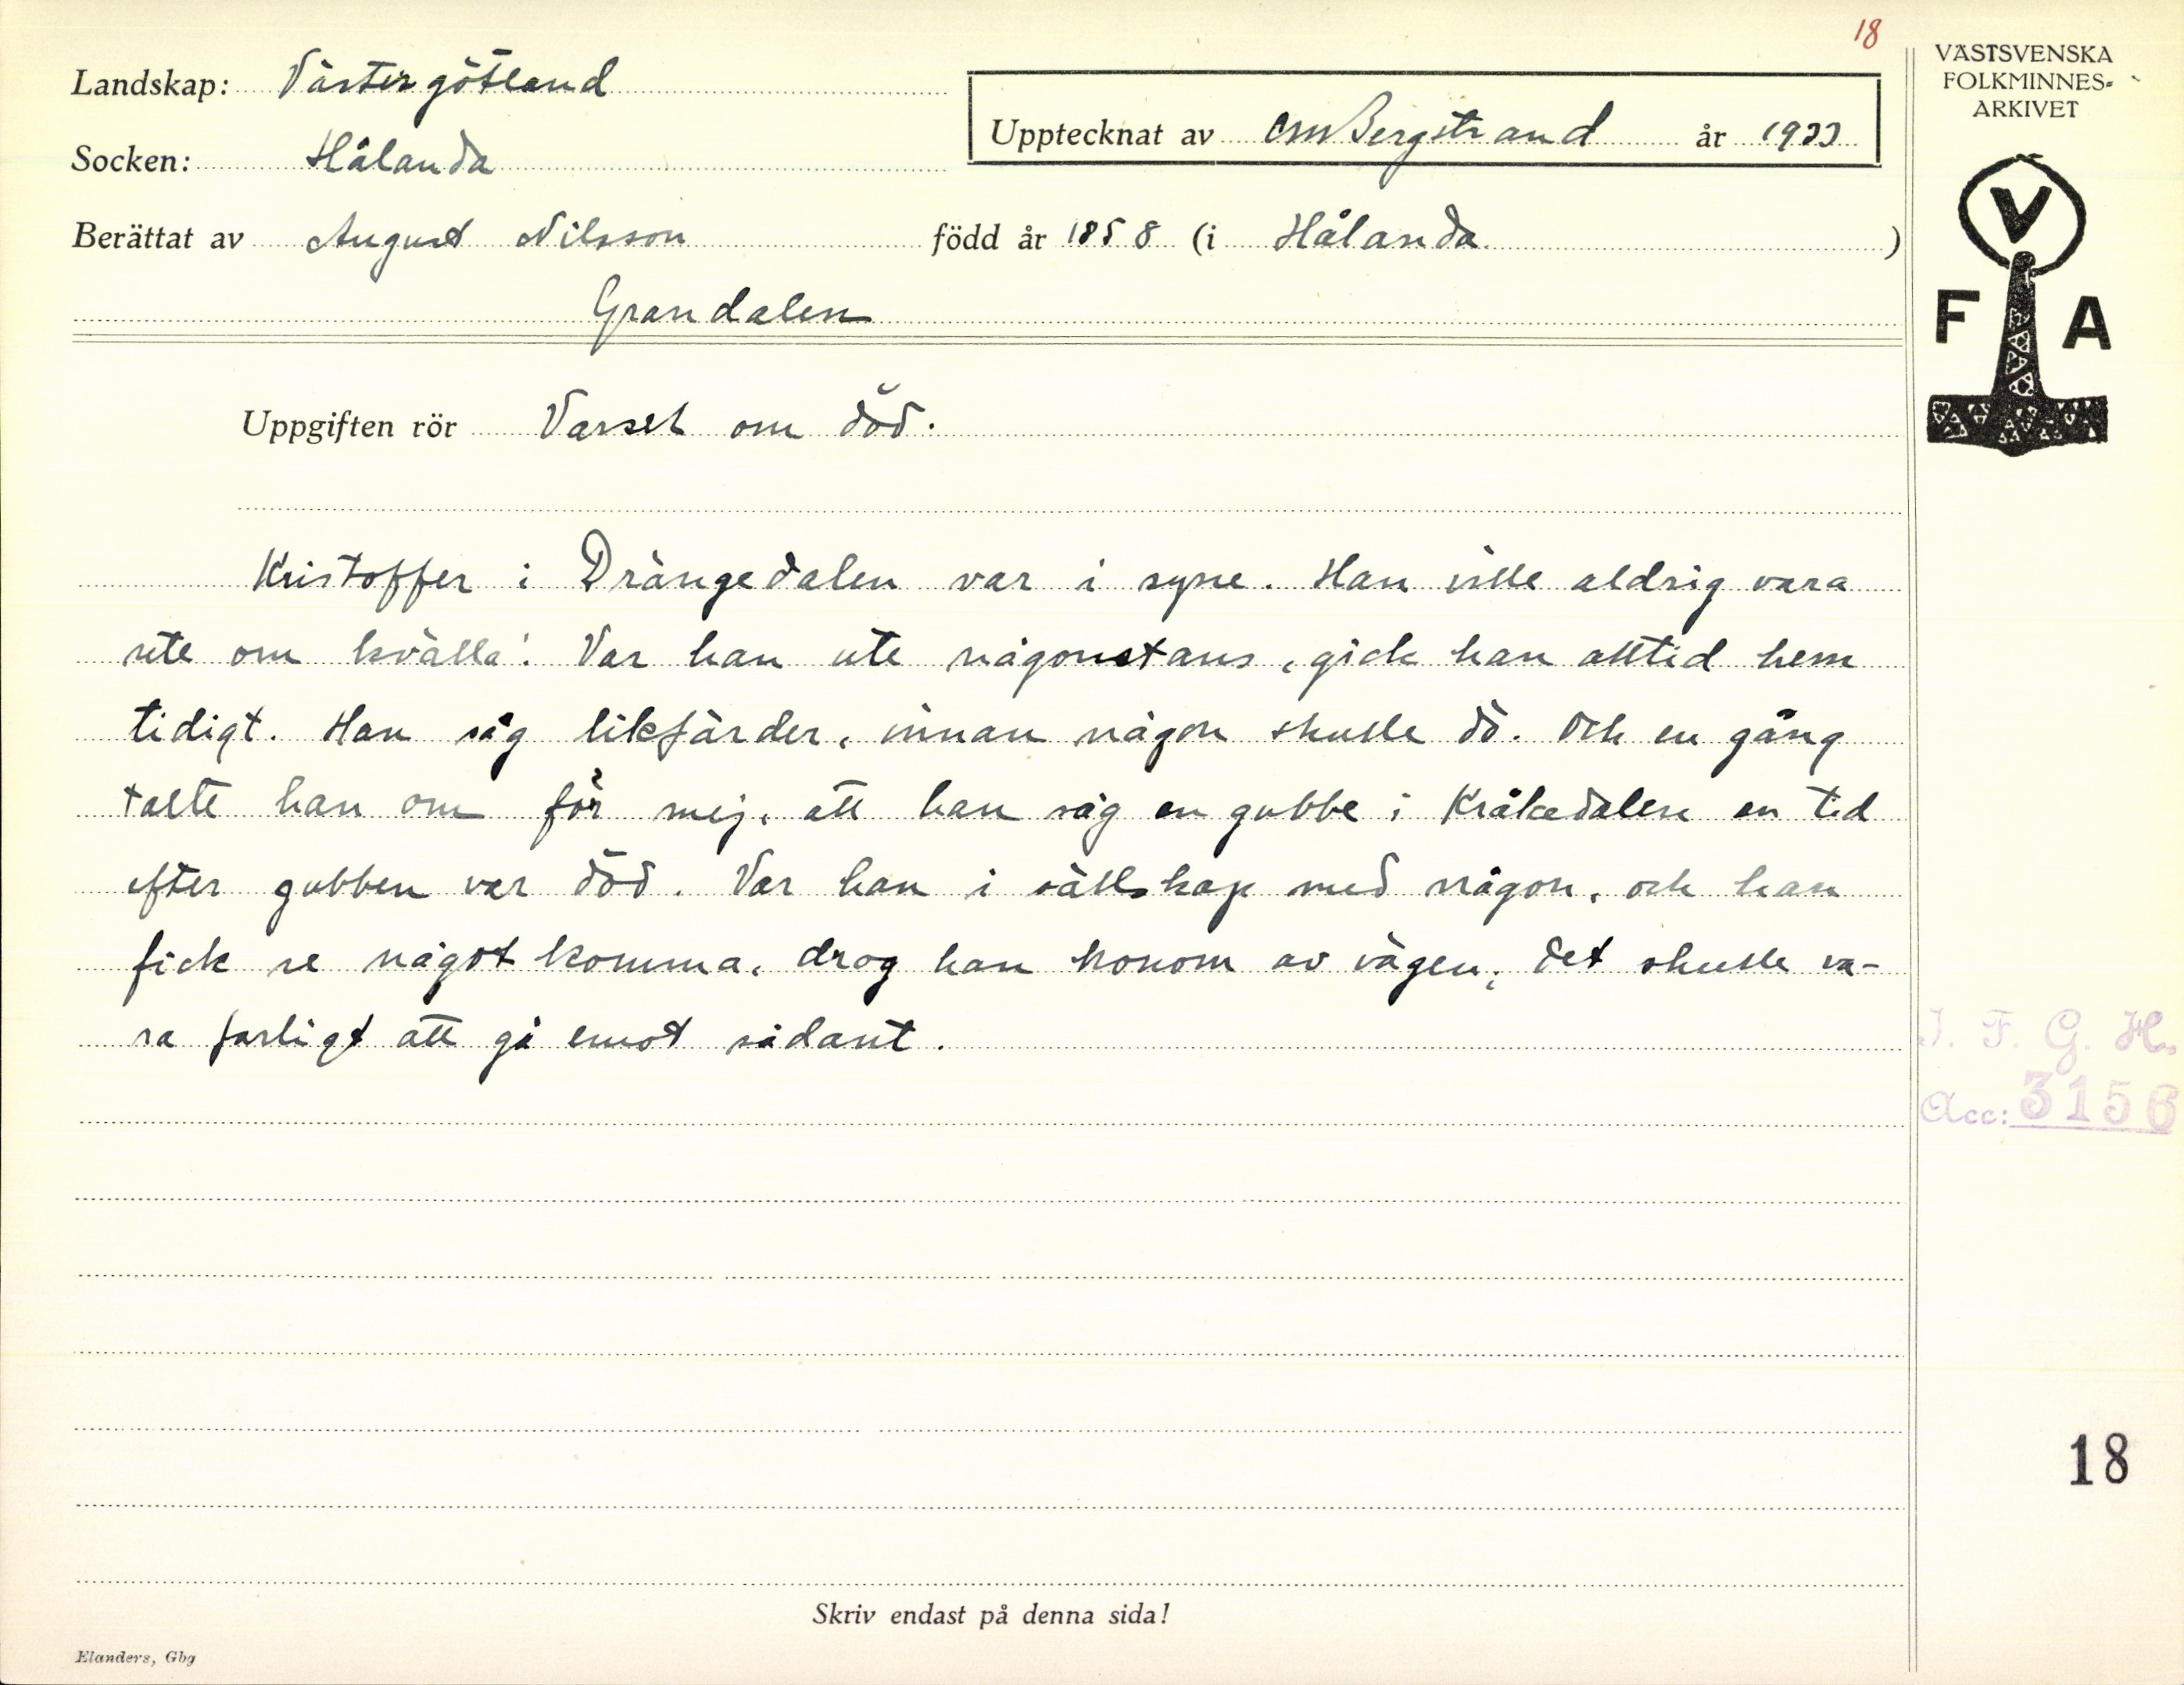 18
VÄSTSVENSKA
FOLKMINNES-
ARKIVET
Landskap: Västergötland
Upptecknat av CMBergstrand år 1933
Socken: Hålanda
Berättat av August Nilsson född år 1858 (i Hålanda)
Grandalen
V
F A
Uppgiften rör Varsel om död.
Kristoffer i Drängedalen var i syne. Han ville aldrig vara
ute om kvälla'. Var han ute någonstans, gick han alltid hem
tidigt. Han såg likfärder, innan någon skulle dö. Och en gång
talte han om för mej, att han såg en gubbe i Kråkedalen en tid
efter gubben var död. Var han i sällskap med någon, och han
fick se något komma, drog han honom av vägen; det skulle va-
ra farligt att gå emot sådant.
I. F. G. H.
Acc: 3156
18
Skriv endast på denna sida!
Elanders, Gbg